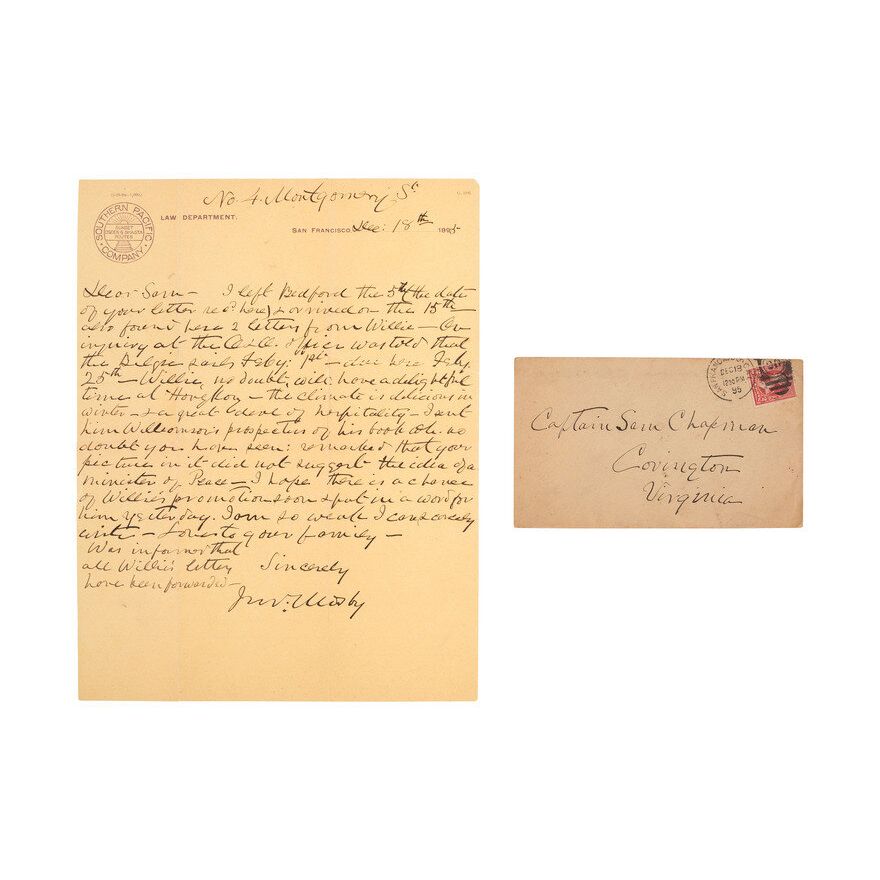 No 4. Montgomery St
LAW DEPARTMENT.
SOUTHERN PACIFIC COMPANY
SUNSET OGDEN & SHASTA ROUTES
SAN FRANCISCO, Dec: 18th 1895
Dear Sam – I left Bedford the 5th (the date
of your letter rec'd here) & arrived on the 15th
also found here 2 letters from Willie – On
inquiry at the office was told that
the Belgic sails Feby: 1st – due here Feby.
25th – Willie, no doubt, will have a delightful
time at Hongkong – the climate is delicious in
winter – & a great deal of hospitality – I sent
him Williamson's prospectus of his book wh. no
doubt you have seen: remarked that your
picture in it did not suggest the idea of a
minister of Peace – I hope there is a chance
of Willie's promotion soon & put in a word for
him yesterday. I am so weak I can scarcely
write – Love to your family –
Was informed that
all Willie's letters
have been forwarded –
Sincerely
Jno. S. Mosby
SAN FRANCISCO, CAL.
DEC 18
12 30 PM
95
Captain Sam Chapman
Covington
Virginia